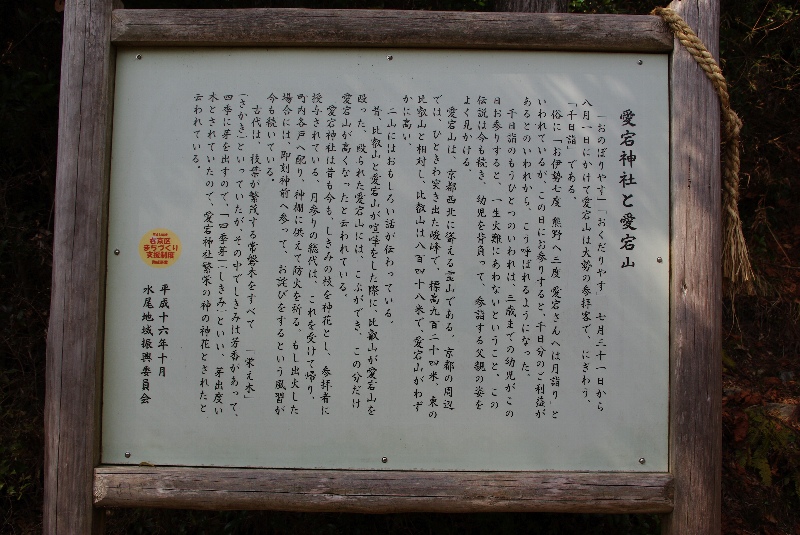 愛宕神社と愛宕山
「おのぼりやす」「おくだりやす」七月三十一日から
八月一日にかけて愛宕山は大勢の参拝客で、にぎわう。
「千日詣」である。
俗に「お伊勢七度 熊野へ三度 愛宕さんへは月詣り」と
いわれているが、この日にお参りすると、千日分のご利益が
あるとのいわれから、こう呼ばれるようになった。
千日詣のもうひとつのいわれは、三歳までの幼児がこの
日お参りすると、一生火難にあわないということ、この
伝説は今も続き、幼児を背負って、参詣する父親の姿を
よく見かける。
愛宕山は、京都西北に聳える霊山である。京都の周辺
では、ひときわ突き出た峻峰で、標高九百二十四米、東の
比叡山と相対し、比叡山は八百四十八米で、愛宕山がわず
かに高い。
二山にはおもしろい話が伝わっている。
昔、比叡山と愛宕山が喧嘩をした際に、比叡山が愛宕山を
殴った。殴られた愛宕山には、こぶができ、この分だけ
愛宕山が高くなったと云われている。
愛宕神社は昔も今も、しきみの枝を神花とし、参拝者に
授与されている。月参りの総代は、これを受けて帰り、
町内各戸へ配り、神棚に供えて防火を祈る。もし出火した
場合には、即刻神前へ参って、お詫びをするという風習が
今も続いている。
古代は、枝葉が繁茂する常磐木をすべて 「栄え木」
(さかき)といっていたが、その中でしきみは芳香があって、
四季に芽を出すので、「四季芽」(しきみ)といい、芽出度い
木とされていたので、愛宕神社繁栄の神の神花とされたと
云われている。
平成十六年十月
水尾地域振興委員会
右京区
まちづくり
支援制度